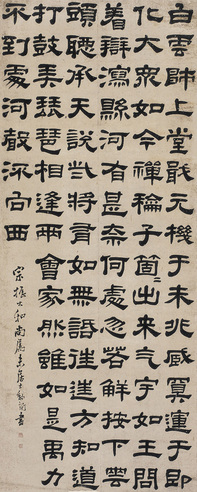 白雲師上堂戢元機于未兆感冥運于即
化大衆如今禪稐子箇〻出来气宇如王問
着辯瀉縣河有甚奈何處忽若解按下雲
頭聽承天說將有如無誑往迷方知道
打鼓弄琵琶相逢兩會家然雖如是禹力
不到處河聲流向西
宗振大和尚屬書